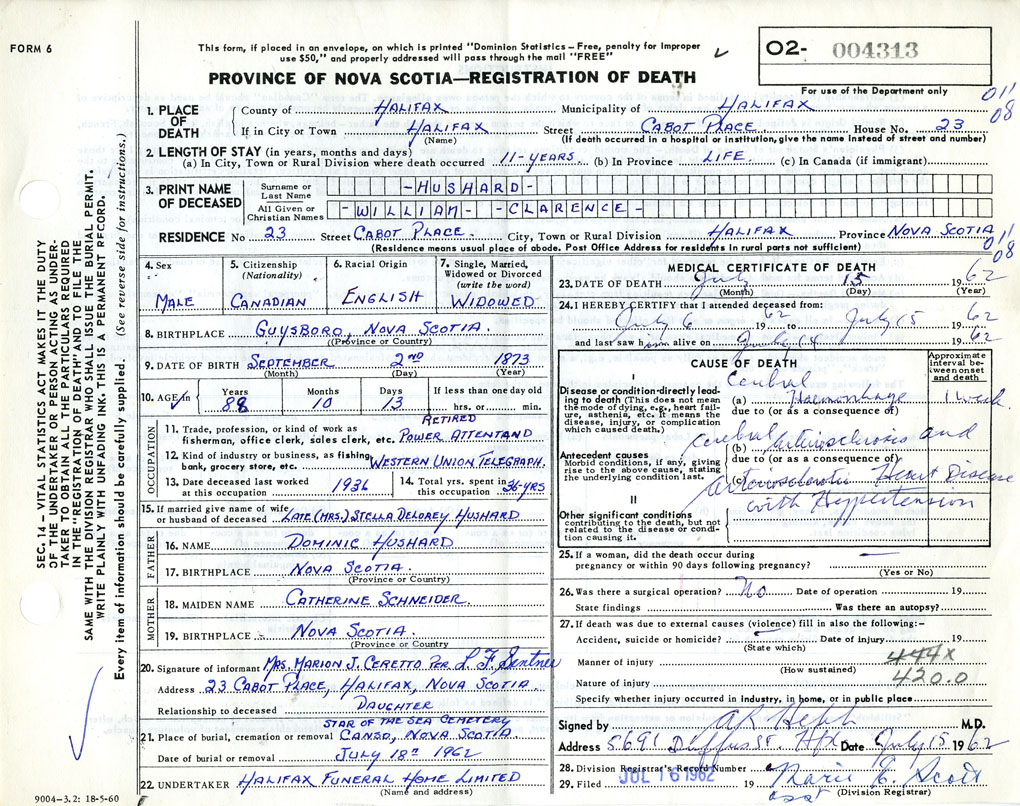 FORM 6
This form, if placed in an envelope, on which is printed "Dominion Statistics – Free, penalty for improper
use $50," and properly addressed will pass through the mail "FREE"
O2- 004313
For use of the Department only
PROVINCE OF NOVA SCOTIA—REGISTRATION OF DEATH
011
08
1. PLACE OF DEATH
County of HALIFAX Municipality of HALIFAX
If in City or Town HALIFAX Street CABOT PLACE House No. 23
(Name) (If death occurred in a hospital or institution, give the name instead of street and number)
2. LENGTH OF STAY (in years, months and days)
(a) In City, Town or Rural Division where death occurred 11-YEARS. (b) In Province LIFE. (c) In Canada (if immigrant)
3. PRINT NAME OF DECEASED
Surname or Last Name -HUSHARD-
All Given or Christian Names -WILLIAM- -CLARENCE-
RESIDENCE No 23 Street CABOT PLACE City, Town or Rural Division HALIFAX Province NOVA SCOTIA
(Residence means usual place of abode. Post Office Address for residents in rural parts not sufficient)
011
08
4. Sex MALE
5. Citizenship (Nationality) CANADIAN
6. Racial Origin ENGLISH
7. Single, Married, Widowed or Divorced (write the word) WIDOWED
8. BIRTHPLACE GUYSBORO, NOVA SCOTIA.
(Province or Country)
9. DATE OF BIRTH SEPTEMBER 2ND 1873
(Month) (Day) (Year)
10. AGE in Years 88 Months 10 Days 13 If less than one day old hrs. or min.
OCCUPATION
11. Trade, profession, or kind of work as fisherman, office clerk, sales clerk, etc. RETIRED POWER ATTENTAND
12. Kind of industry or business, as fishing, bank, grocery store, etc. WESTERN UNION TELEGRAPH.
13. Date deceased last worked at this occupation 1936
14. Total yrs. spent in this occupation 36-YRS
15. If married give name of wife or husband of deceased LATE (MRS.) STELLA DELOREY HUSHARD
FATHER
16. NAME DOMINIC HUSHARD
17. BIRTHPLACE NOVA SCOTIA.
(Province or Country)
MOTHER
18. MAIDEN NAME CATHERINE SCHNEIDER.
19. BIRTHPLACE NOVA SCOTIA.
(Province or Country
20. Signature of informant MRS. MARION J. CERETTO PER L. F. Sentner
Address 23 CABOT PLACE, HALIFAX, NOVA SCOTIA.
Relationship to deceased DAUGHTER
21. Place of burial, cremation or removal STAR OF THE SEA CEMETERY CANSO, NOVA SCOTIA
Date of burial or removal JULY 18TH 1962
22. UNDERTAKER HALIFAX FUNERAL HOME LIMITED
(Name and address)
9004-3.2: 18-5-60
MEDICAL CERTIFICATE OF DEATH
23. DATE OF DEATH July 15 1962
(Month) (Day) (Year)
24. I HEREBY CERTIFY that I attended deceased from:
July 6 1962 to July 15 1962
and last saw him alive on July 14 1962
CAUSE OF DEATH
Approximate interval between onset and death
I
Disease or condition directly leading to death (This does not mean the mode of dying, e.g., heart failure, asthenia, etc. It means the disease, injury, or complication which caused death.)
(a) Cerebral Haemorrhage 1 week.
due to (or as a consequence of)
Antecedent causes
Morbid conditions, if any, giving rise to the above cause, stating the underlying condition last.
(b) cerebral arteriosclerosis and
due to (or as a consequence of)
(c) arteriosclerotic Heart Disease
with Hypertension
II
Other significant conditions
contributing to the death, but not related to the disease or condition causing it.
25. If a woman, did the death occur during pregnancy or within 90 days following pregnancy?
(Yes or No)
26. Was there a surgical operation? No Date of operation 19
State findings Was there an autopsy?
27. If death was due to external causes (violence) fill in also the following:–
Accident, suicide or homicide? Date of injury 19
(State which)
Manner of injury 444X
(How sustained)
Nature of injury 420.0
Specify whether injury occurred in industry, in home, or in public place
Signed by M.D.
Address 5691 Duffus St. Hfx Date July 15 1962
28. Division Registrar's Record Number
29. Filed JUL 16 1962 19 Marie E. Scott
asst (Division Registrar)
SEC. 14 – VITAL STATISTICS ACT MAKES IT THE DUTY
OF THE UNDERTAKER OR PERSON ACTING AS UNDER-
TAKER TO OBTAIN ALL THE PARTICULARS REQUIRED
IN THE "REGISTRATION OF DEATH" AND TO FILE THE
SAME WITH THE DIVISION REGISTRAR WHO SHALL ISSUE THE BURIAL PERMIT.
WRITE PLAINLY WITH UNFADING INK. THIS IS A PERMANENT RECORD.
Every item of information should be carefully supplied. (See reverse side for instructions.)